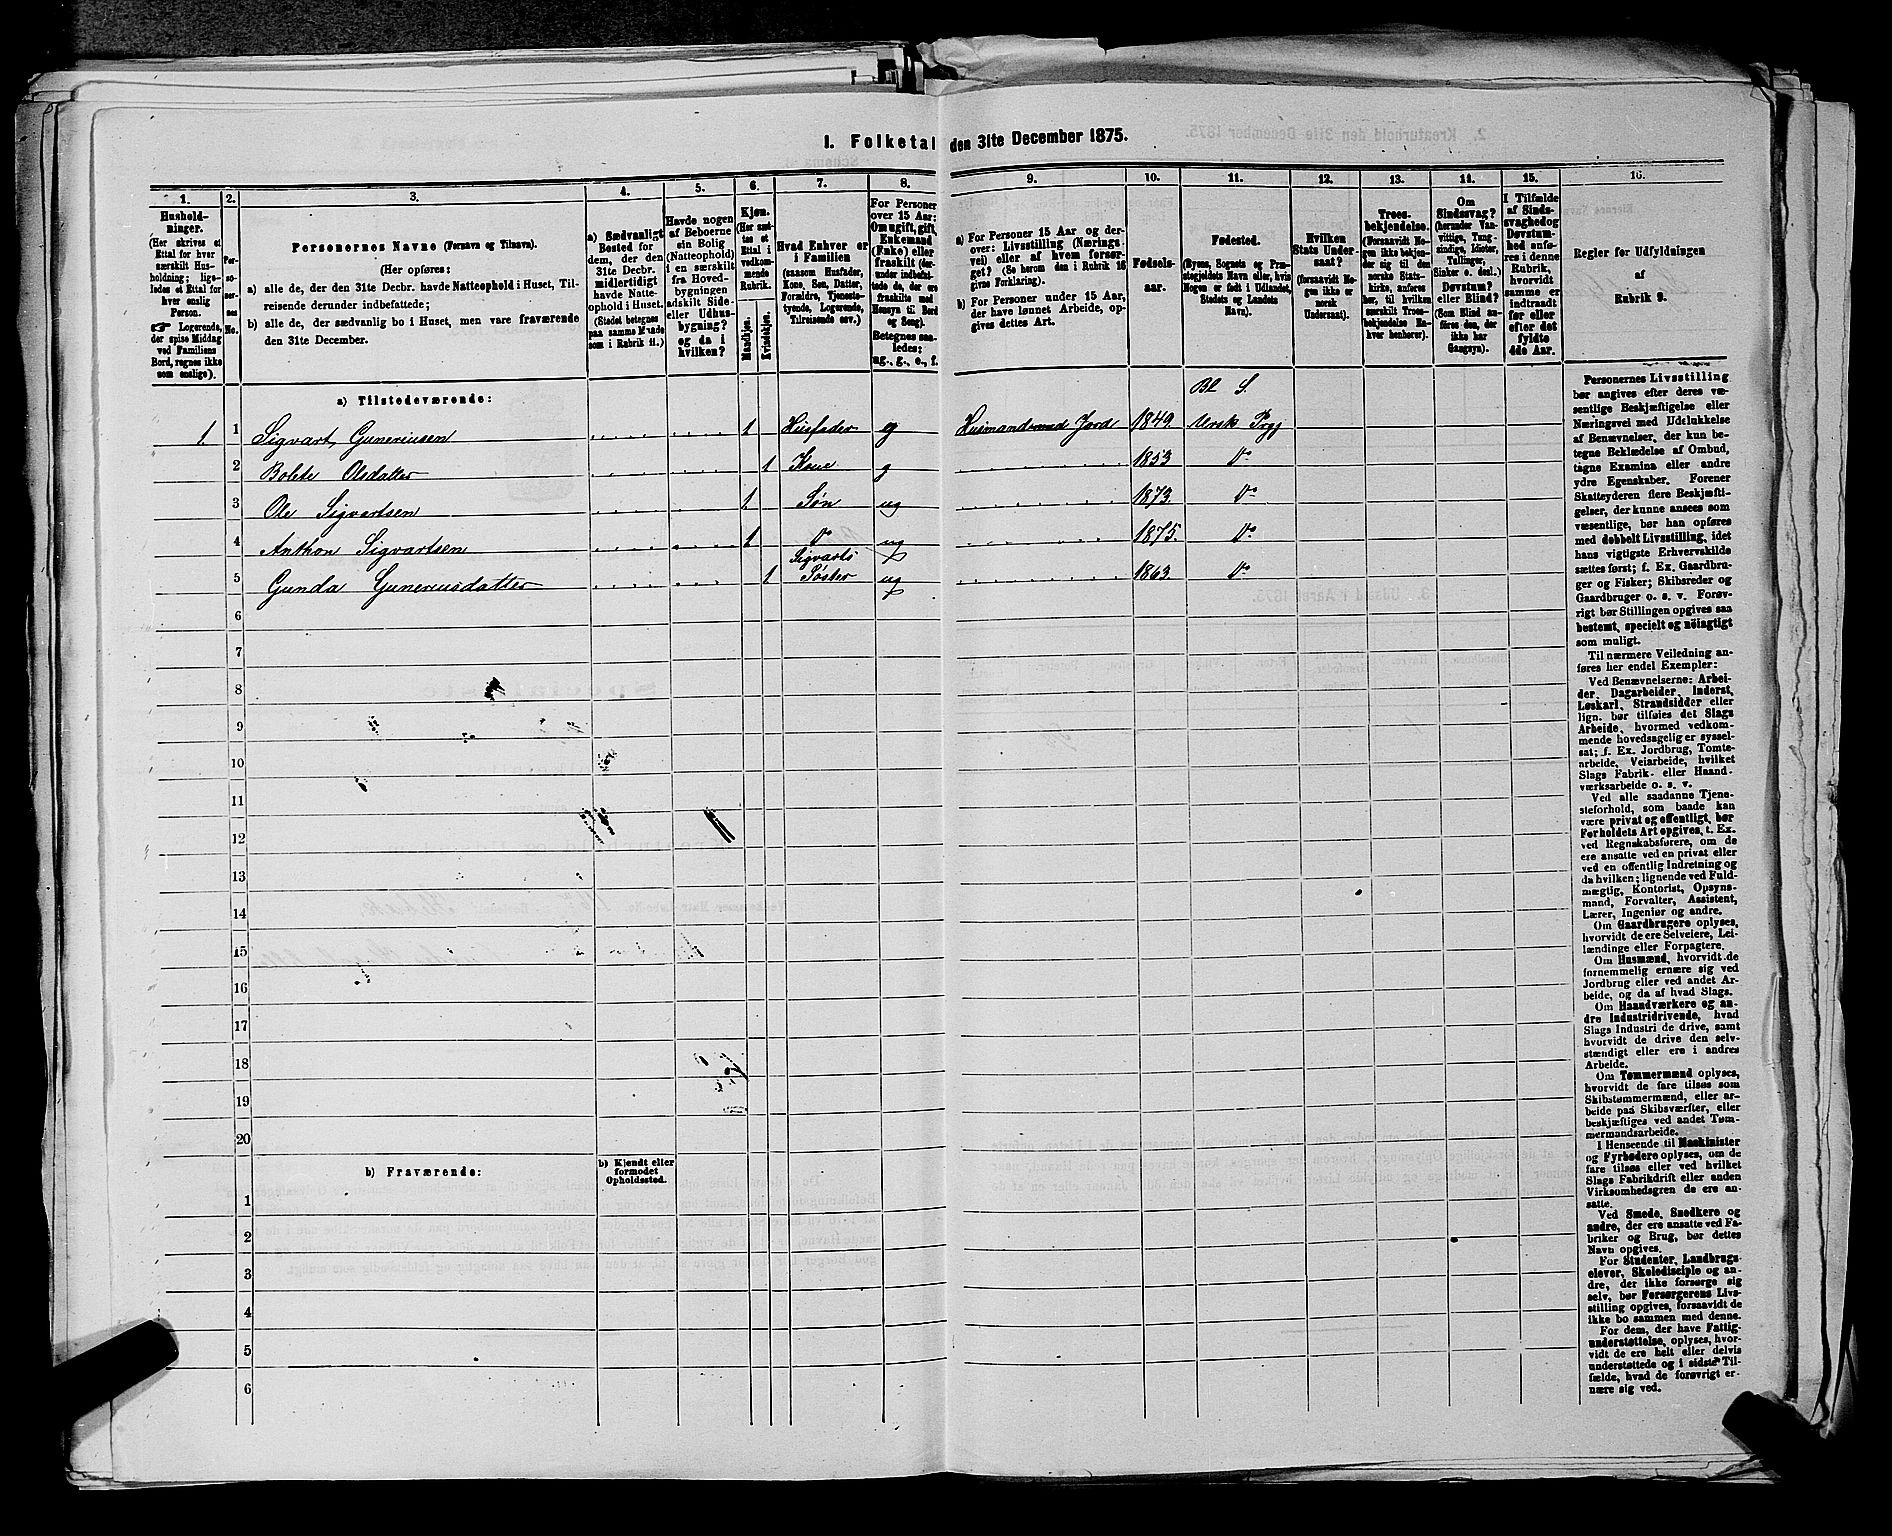 I. Folketal den 31te December 1875.
1. 2. 3. 4. 5. 6. 7. 8. 9. 10. 11. 12. 13. 14. 15. 16.
Hushold-
ninger.
(Her skrives et
Ettal for hver
særskilt Hus-
holdning; lige-
ledes et Ettal for
hver enslig
Person.
☞ Logerende,
der spise Middag
ved Familiens
Bord, regnes ikke
som enslige).
Per-
so-
ner-
nes
No.
Personernes Navne (Fornavn og Tilnavn).
(Her opføres:
a) alle de, der den 31te Decbr. havde Natteophold i Huset, Til-
reisende derunder indbefattede;
b) alle de, der sædvanlig bo i Huset, men vare fraværende
den 31te December.
a) Sædvanligt
Bosted for
dem, der den
31te Decbr.
midlertidigt
havde Natte-
ophold i Huset.
(Stedet betegnes
paa samme Maade
som i Rubrik 11.)
Havde nogen
af Beboerne
sin Bolig
(Natteophold)
i en særskilt
fra Hoved-
bygningen
adskilt Side-
eller Udhus-
bygning?
og da i
hvilken?
Kjøn.
(Her sæt-
tes et
Ettal i
vedkom-
mende
Rubrik.
Mandkjøn.
Kvindekjøn.
Hvad Enhver er
i Familien
(saasom Husfader,
Kone, Søn, Datter,
Forældre, Tjeneste-
tyende, Logerende,
Tilreisende osv.)
For Personer
over 15 Aar:
Om ugift, gift,
Enkemand
(Enke) eller
fraskilt (der-
under indbefat-
tede de, der ere
fraskilte med
Hensyn til Bord
og Seng).
Betegnes saa-
ledes:
ug., g., e., f.
a) For Personer 15 Aar og der-
over: Livsstilling (Nærings-
vei) eller af hvem forsør-
get? (Se herom den i Rubrik 16
givne Forklaring).
b) For Personer under 15 Aar,
der have lønnet Arbeide, op-
gives dettes Art.
Fødsels-
aar.
Fødested.
(Byens, Sognets og Præ-
stegjeldets Navn eller, hvis
Nogen er født i Udlandet,
Stedets og Landets
Navn).
Hvilken
Stats Under-
saat?
(forsaavidt No-
gen ikke er
norsk
Undersaat).
Troes-
bekjendelse.
(Forsaavidt No-
gen ikke bekjen-
der sig til den
norske Stats-
kirke, anføres
her, til hvilken
særskilt Troes-
bekjendelse En-
hver henhører).
Om
Sindssvag?
(herunder Van-
vittige, Tung-
sindige, Idioter,
Tullinger,
Sinker o. desl.)
Døvstum?
eller Blind?
(Som Blind an-
føres den, der
ikke har
Gangsyn).
I Tilfælde
af Sinds-
svaghed og
Døvstum-
hed anfø-
res i denne
Rubrik,
hvorvidt
samme er
indtraadt
før eller
efter det
fyldte
4de Aar.
Regler for Udfyldningen
af
Rubrik 9.
a) Tilstedeværende:
Bl S.
1. 1 Sigvart Guneriusen 1 Husfader g Husmand med Jord 1849 Ursk Prgj
2 Bolete Olsdatter 1 Kone g 1853 Do
3 Ole Sigvartsen 1 Søn ug 1873 Do
4 Anthon Sigvartsen 1 Do ug 1875 Do
5 Gunda Guneriusdatter 1 Sigvarts Søster ug 1863 Do
6
7
8
9
10
11
12
13
14
15
16
17
18
19
20
b) Fraværende:
b) Kjendt eller
formodet
Opholdssted.
1
2
3
4
5
6
Personernes Livsstilling
bør angives efter deres væ-
sentlige Beskjæftigelse eller
Næringsvei med Udelukkelse
af Benævnelser, der kun be-
tegne Beklædelse af Ombud,
tagne Examina eller andre
ydre Egenskaber. Forener
Skatteyderen flere Beskjæfti-
gelser, der kunne ansees som
væsentlige, bør han opføres
med dobbelt Livsstilling, idet
hans vigtigste Erhvervskilde
sættes først; f. Ex. Gaardbru-
ger og Fisker; Skibsreder og
Gaardbruger o. s. v. Forøv-
rigt bør Stillingen opgives saa
bestemt, specielt og nøiagtigt
som muligt.
Til nærmere Veiledning an-
føres her endel Exempler:
Ved Benævnelserne: Arbei-
der, Dagarbeider, Inderst,
Løskarl, Strandsidder eller
lign. bør tilføies det Slags
Arbeide, hvormed vedkom-
mende hovedsagelig er syssel-
sat; f. Ex. Jordbrug, Tomte-
arbeide, Veiarbeide, hvilket
Slags Fabrik- eller Haand-
værksarbeide o. s. v.
Ved alle saadanne Tjene-
steforhold, som baade kan
være privat og offentligt, bør
Forholdets Art opgives, t. Ex.
ved Regnskabsførere, om de
ere ansatte ved en privat eller
ved en offentlig Indretning og
da hvilken; lignende ved Fuld-
mægtig, Kontorist, Opsyns-
mand, Forvalter, Assistent,
Lærer, Ingeniør og andre.
Om Gaardbrugere oplyses,
hvorvidt de ere Selveiere, Lei-
lændinge eller Forpagtere.
Om Husmænd, hvorvidt de
fornemmelig ernære sig ved
Jordbrug eller ved andet Ar-
beide, og da af hvad Slags.
Om Haandværkere og an-
dre Industridrivende, hvad
Slags Industri de drive, samt
hvorvidt de drive den selv-
stændigt eller ere i andres
Arbeide.
Om Tømmermænd oplyses,
hvorvidt de fare tilsøs som
Skibstømmermænd, eller ar-
beide paa Skibsværfter, eller
beskjæftiges ved andet Tøm-
mermandsarbeide.
I Henseende til Maskinister
og Fyrbødere oplyses, om de
fare tilsøs eller ved hvilket
Slags Fabrikdrift eller anden
Virksomhedsgren de ere an-
satte.
Ved Smede, Snedkere og
andre, der ere ansatte ved Fa-
briker og Brug, bør dettes
Navn opgives.
For Studenter, Landbrugs-
elever, Skoledisciple og an-
dre, der ikke forsørge sig
selv, bør Forsørgerens Livs-
stilling opgives, forsaavidt de
ikke bo sammen med denne.
For dem, der have Fattig-
understøttelse, oplyses, hvor-
vidt de ere helt eller delvis
understøttede og i sidste Til-
fælde, hvad de forøvrigt er-
nære sig ved.